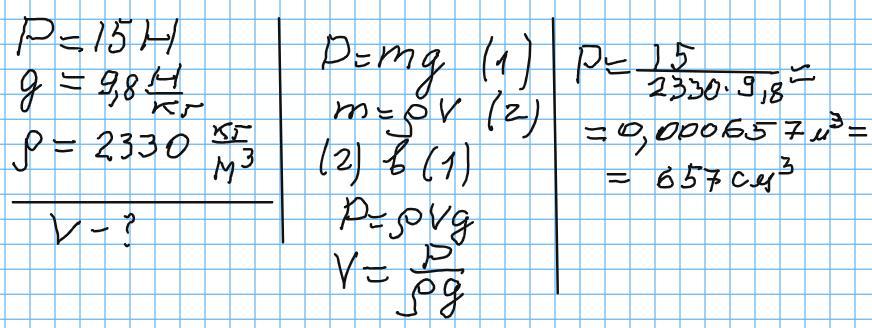 P = 15 Н
g = 9,8 Н/кг
ρ = 2330 кг/м³
V - ?
P = mg (1)
m = ρV (2)
(2) в (1)
P = ρVg
V = P/ρg
P = 15/2330·9,8 =
= 0,000657 м³ =
= 657 см³